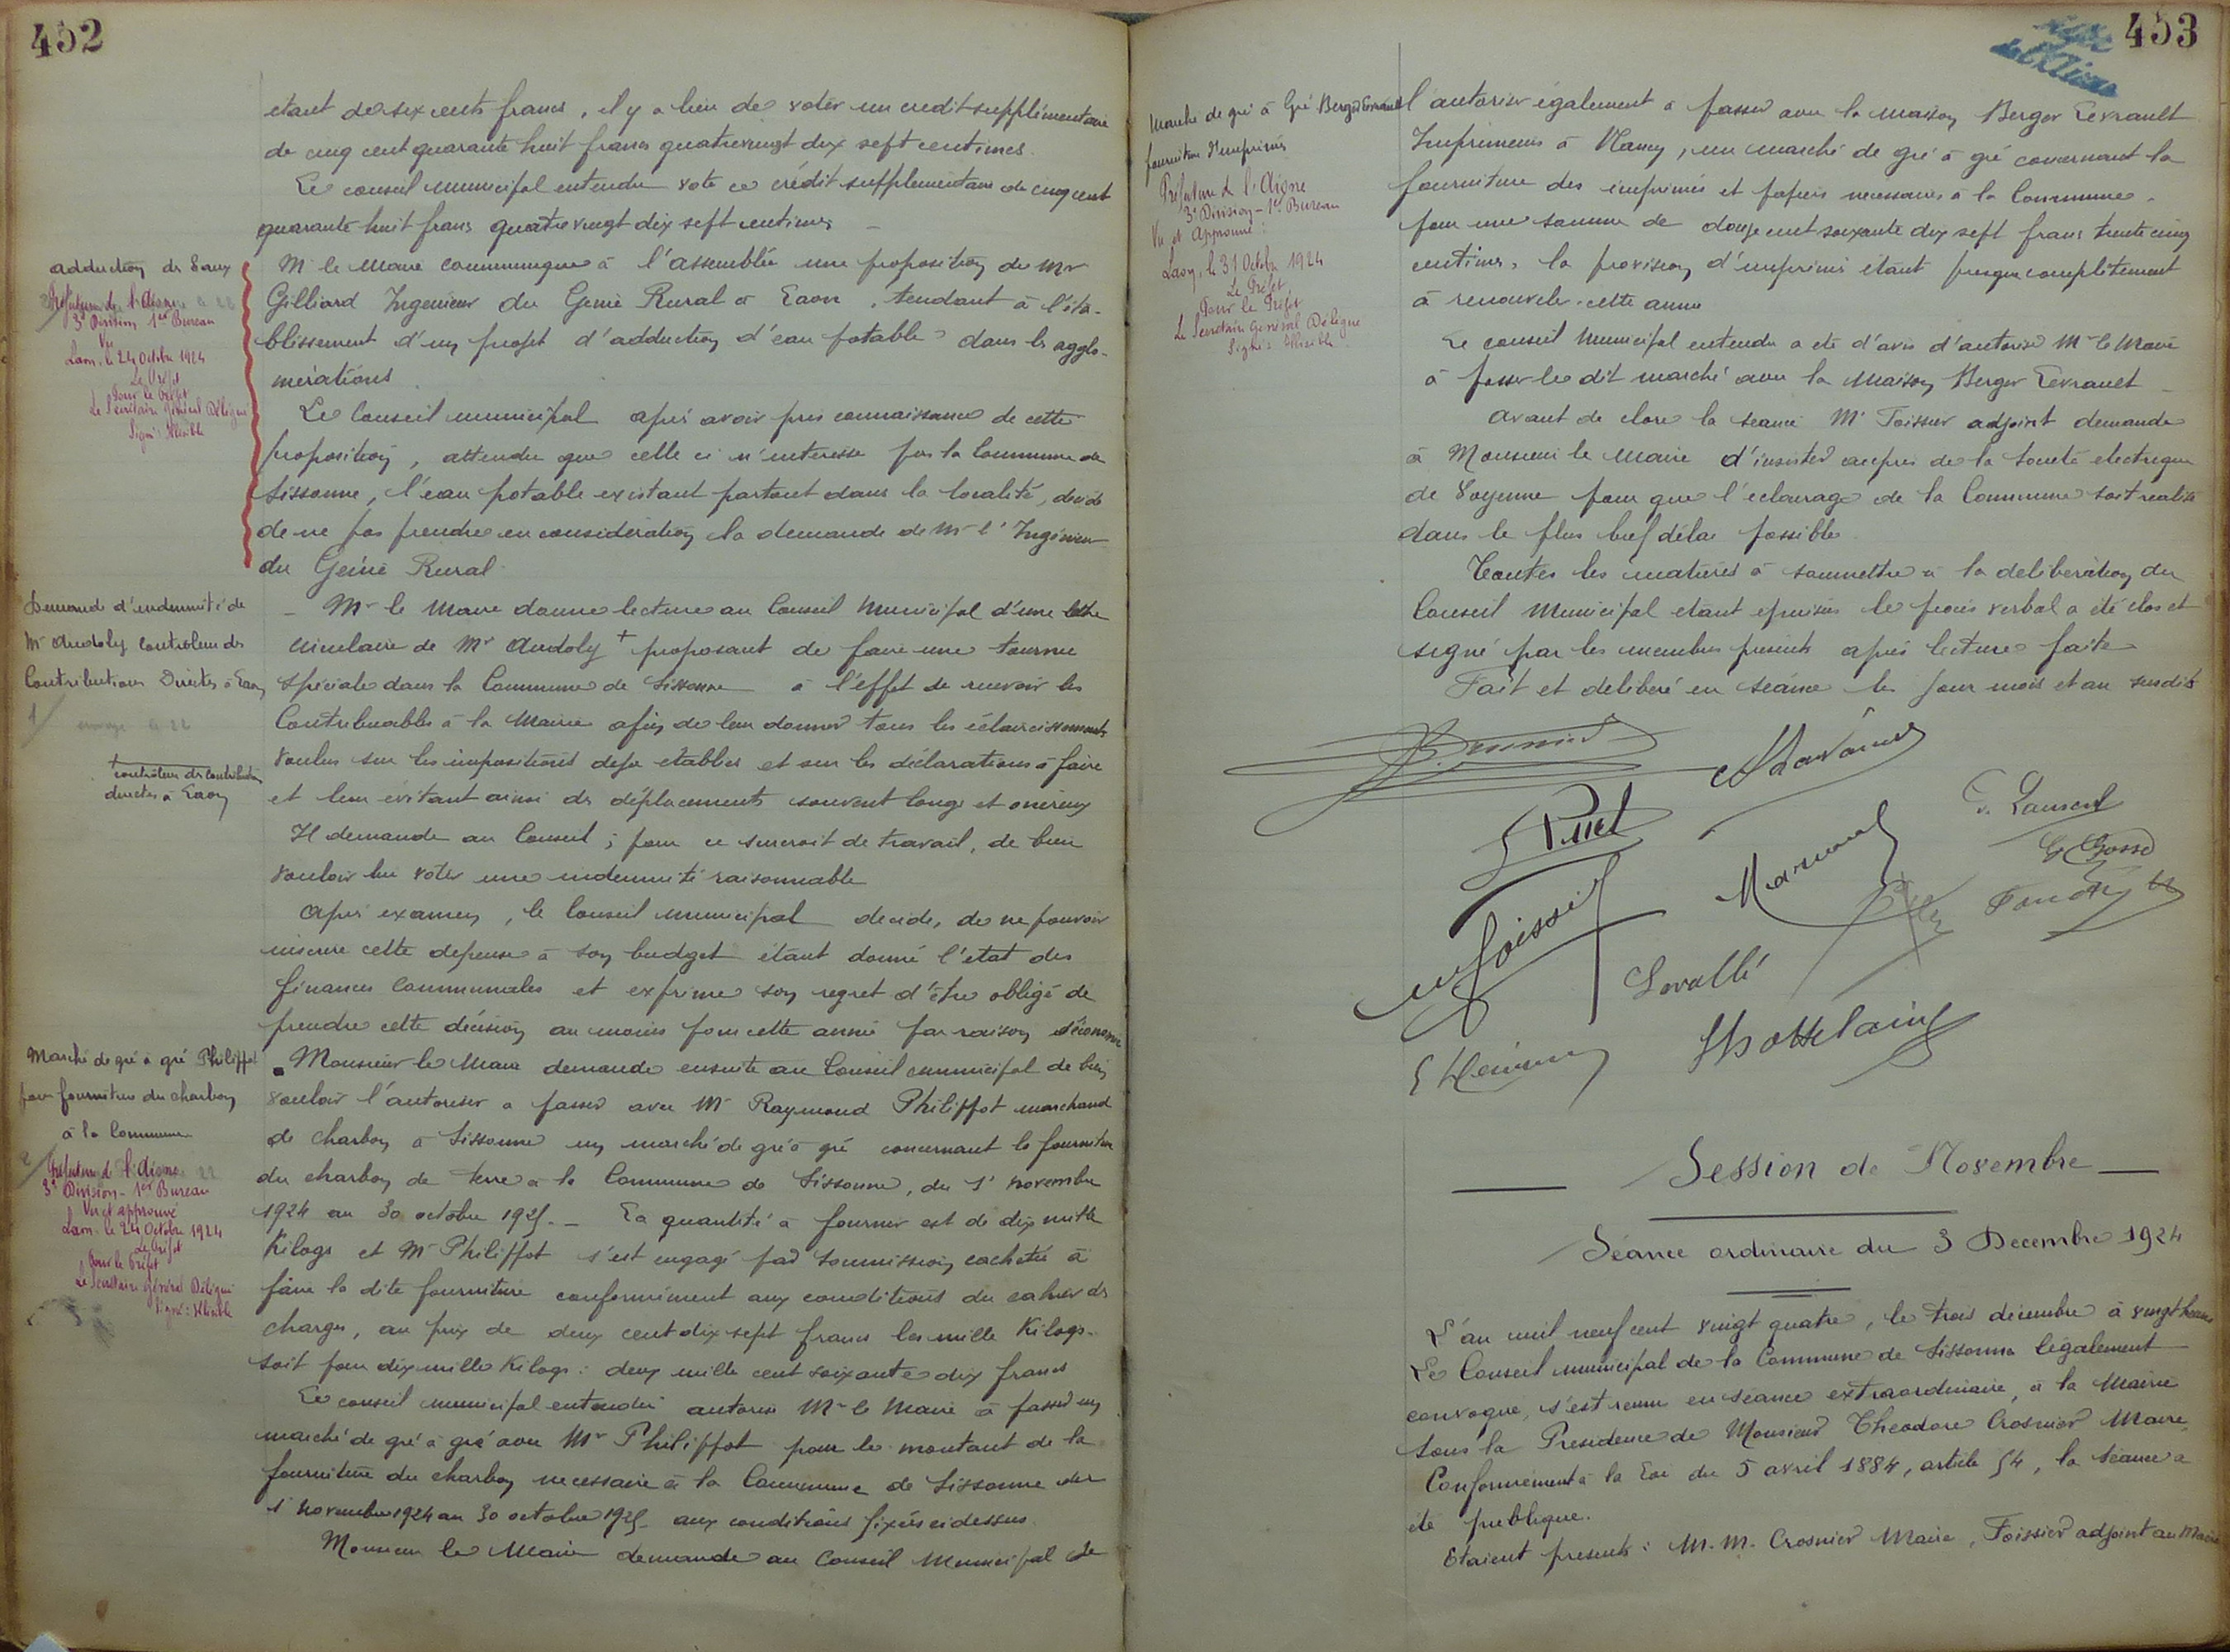 452
étant de six cents francs, il y a lieu de voter un crédit supplémentaire
de cinq cent quarante huit francs quatrevingt dix sept centimes.
Le conseil municipal entendu vote ce crédit supplémentaire de cinq cent
quarante huit francs quatrevingt dix sept centimes
adduction des Eaux
Préfecture de l'Aisne
3e Division 1er Bureau
Vu
Laon, le 24 Octobre 1924
Le Préfet
Pour le Préfet
Le Secrétaire Général Délégué
Signé: Illisible
M. le Maire communique à l'assemblée une proposition de Mr
Gilliard Ingenieur du Genie Rural à Laon, tendant à l'éta-
blissement d'un projet d'adduction d'eau potable dans les agglo-
mérations
Le Conseil municipal après avoir pris connaissance de cette
proposition, attendu que celle ci n'interesse pas la Commune de
Sissonne, l'eau potable existant partout dans la localité, décide
de ne pas prendre en considération la demande de Mr l'Ingénieur
du Génie Rural
Demande d'indemnité de
Mr Audoly controleur des
Contributions Directes à Laon
1/
- Mr le Maire donne lecture au Conseil Municipal d'une lettre
circulaire de Mr Audoly + proposant de faire une tournée
spéciale dans la Commune de Sissonne à l'effet de recevoir les
Contribuables à la Mairie afin de leur donner tous les éclaircissements
voulus sur les impositions déja établies et sur les déclarations à faire
et leur évitant ainsi des déplacements souvent longs et onéreux
+ contrôleur des contributions
directes à Laon
Il demande au Conseil, pour ce surcroit de travail, de bien
vouloir lui voter une indemnité raisonnable
Après examen, le Conseil municipal decide, de ne pouvoir
inscrire cette depense à son budget étant donné l'état des
finances Communales et exprime son regret d'être obligé de
prendre cette décision au moins pour cette année par raison d'économie
Marché de gré à gré Philippot
pour fourniture du charbon
à la Commune
2/
Préfecture de l'Aisne
3e Division - 1er Bureau
Vu et approuvé
Laon le 24 Octobre 1924
Le Préfet
Pour le Préfet
Le Secrétaire Général Délégué
Signé: Illisible
Monsieur le Maire demande ensuite au Conseil municipal de bien
vouloir l'autoriser a passer avec Mr Raymond Philippot marchand
de charbon à Sissonne un marché de gré à gré concernant la fourniture
du charbon de terre à la Commune de Sissonne, du 1er novembre
1924 au 30 octobre 1925. - La quantité a fournir est de dix mille
Kilogs et Mr Philippot s'est engagé par soumission cachetée à
faire la dite fourniture conformément aux conditions du cahier des
charges, au prix de deux cent dix sept francs les mille Kilogs.
soit pour dix mille Kilogs: deux mille cent soixante dix francs
Le conseil municipal entendu autorise Mr le Maire à passer un
marché de gré à gré avec Mr Philippot pour le montant de la
fourniture du charbon necessaire à la Commune de Sissonne du
1er Novembre 1924 au 30 octobre 1925 aux conditions fixées cidessus.
Monsieur le Maire demande au Conseil Municipal de
453
de l'Aisne
Marché de gré à Gré Berger Levrault
fourniture d'imprimés
Préfecture de l'Aisne
3e Division - 1er Bureau
Vu et Approuvé:
Laon, le 31 Octobre 1924
Le Préfet
Pour le Préfet
Le Secrétaire Général Délégué
Signé: Illisible
l'autoriser également à passer avec la maison Berger Levrault
Imprimeurs à Nancy, un marché de gré à gré concernant la
fourniture des imprimés et papiers necessaires à la Commune.
pour une somme de douze cent soixante dix sept francs trente cinq
centimes, la provision d'imprimés étant presque complètement
à renouveler cette année
Le conseil Municipal entendu a été d'avis d'autoriser Mr le Maire
à passer le dit marché avec la Maison Berger Levrault
Avant de clore la séance Mr Foissier adjoint demande
à Monsieur le Maire d'insister auprès de la Société electrique
de Soyenne pour que l'eclairage de la Commune soit réalisé
dans le plus bref délai possible
Toutes les matières à soumettre à la deliberation du
Conseil Municipal étant épuisées le procès verbal a été clos et
signé par les membres présents après lecture faite
Fait et deliberé en séance les jour mois et an susdits
Crosnier
L. Laurent
G Gosse
Foissier
Lavallé
Session de Novembre
Séance ordinaire du 3 Decembre 1924
L'an mil neuf cent vingt quatre, le trois décembre à vingt heures
Le Conseil municipal de la Commune de Sissonne légalement
convoqué, s'est reuni en séance extraordinaire, à la Mairie
sous la Presidence de Monsieur Theodore Crosnier Maire,
Conformément à la Loi du 5 avril 1884, article 54, la séance a
été publique.
Etaient presents: M.M. Crosnier Maire, Foissier adjoint au Maire